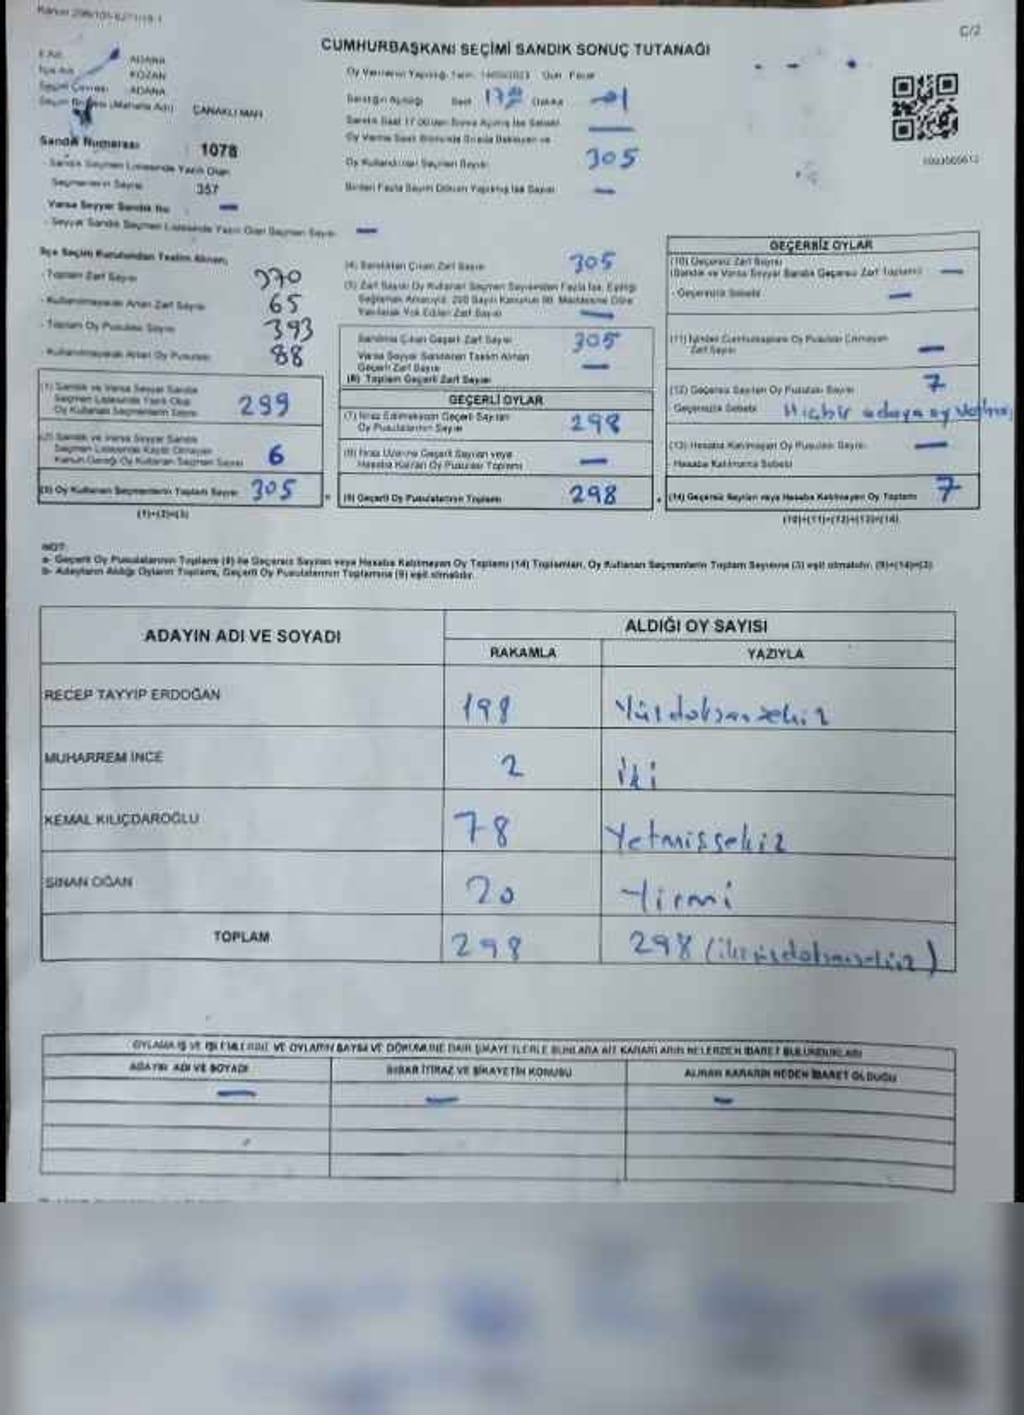 C/2
CUMHURBAŞKANI SEÇİMİ SANDIK SONUÇ TUTANAĞI
İl Adı ADANA
İlçe Adı KOZAN
Seçim Çevresi ADANA
Seçim Bölgesi (Mahalle Adı) ÇANAKLI MAH
Sandık Numarası 1078
- Sandık Seçmen Listesinde Yazılı Olan
Seçmenlerin Sayısı 357
Varsa Seyyar Sandık No: —
- Seyyar Sandık Seçmen Listesinde Yazılı Olan Seçmen Sayısı —
Oy Verilen Seçmen Sayısı 305
Birden Fazla Sayım Döküm Yapılmış İse Sayısı —
İlçe Seçim Kurulundan Teslim Alınan;
- Toplam Zarf Sayısı 370
- Kullanılmayarak Artan Zarf Sayısı 65
- Toplam Oy Pusulası Sayısı 393
- Kullanılmayarak Artan Oy Pusulası 88
(1) Sandık ve Varsa Seyyar Sandık
Seçmen Listesinde Yazılı Olup
Oy Kullanan Seçmenlerin Sayısı 299
(2) Sandık ve Varsa Seyyar Sandık
Seçmen Listesinde Kayıtlı Olmayan
Kanun Gereği Oy Kullanan Seçmen Sayısı 6
(3) Oy Kullanan Seçmenlerin Toplam Sayısı 305
(1)+(2)=(3)
(4) Sandıktan Çıkan Zarf Sayısı 305
Sandıkta Çıkan Geçerli Zarf Sayısı 305
Varsa Seyyar Sandıktan Teslim Alınan
Geçerli Zarf Sayısı —
(6) Toplam Geçerli Zarf Sayısı
GEÇERLİ OYLAR
(7) İtiraz Edilmeksizin Geçerli Sayılan
Oy Pusulalarının Sayısı 298
(8) İtiraz Üzerine Geçerli Sayılan veya
Hesaba Katılan Oy Pusulası Toplamı —
(9) Geçerli Oy Pusulalarının Toplamı 298
GEÇERSİZ OYLAR
(10) Geçersiz Zarf Sayısı
(Sandık ve Varsa Seyyar Sandık Geçersiz Zarf Toplamı) —
- Geçersizlik Sebebi —
(11) İçinden Cumhurbaşkanı Oy Pusulası Çıkmayan
Zarf Sayısı —
(12) Geçersiz Sayılan Oy Pusulası Sayısı 7
Geçersizlik Sebebi Hiçbir adaya oy
(13) Hesaba Katılmayan Oy Pusulası Sayısı —
- Hesaba Katılmama Sebebi
(14) Geçersiz Sayılan veya Hesaba Katılmayan Oy Toplamı 7
(10)+(11)+(12)+(13)=(14)
NOT:
a- Geçerli Oy Pusulalarının Toplamı (9) ile Geçersiz Sayılan veya Hesaba Katılmayan Oy Toplamı (14) Toplamları, Oy Kullanan Seçmenlerin Toplam Sayısına (3) eşit olmalıdır. (9)+(14)=(3)
b- Adayların Aldığı Oyların Toplamı, Geçerli Oy Pusulalarının Toplamına (9) eşit olmalıdır.
ADAYIN ADI VE SOYADI
ALDIĞI OY SAYISI
RAKAMLA YAZIYLA
RECEP TAYYİP ERDOĞAN 198 Yüzdoksansekiz
MUHARREM İNCE 2 İki
KEMAL KILIÇDAROĞLU 78 Yetmişsekiz
SİNAN OĞAN 20 Yirmi
TOPLAM 298 298 (ikiyüzdoksansekiz)
OYLAMA İŞ VE İŞLEMLERİNE VE OYLARIN SAYIM VE DÖKÜMÜNE DAİR ŞİKAYETLERLE BUNLARA AİT KARARLARIN NELERDEN İBARET BULUNDUKLARI
ADAYIN ADI VE SOYADI İTİRAZ VE ŞİKAYETİN KONUSU ALINAN KARARIN NEDEN İBARET OLDUĞU
— — —